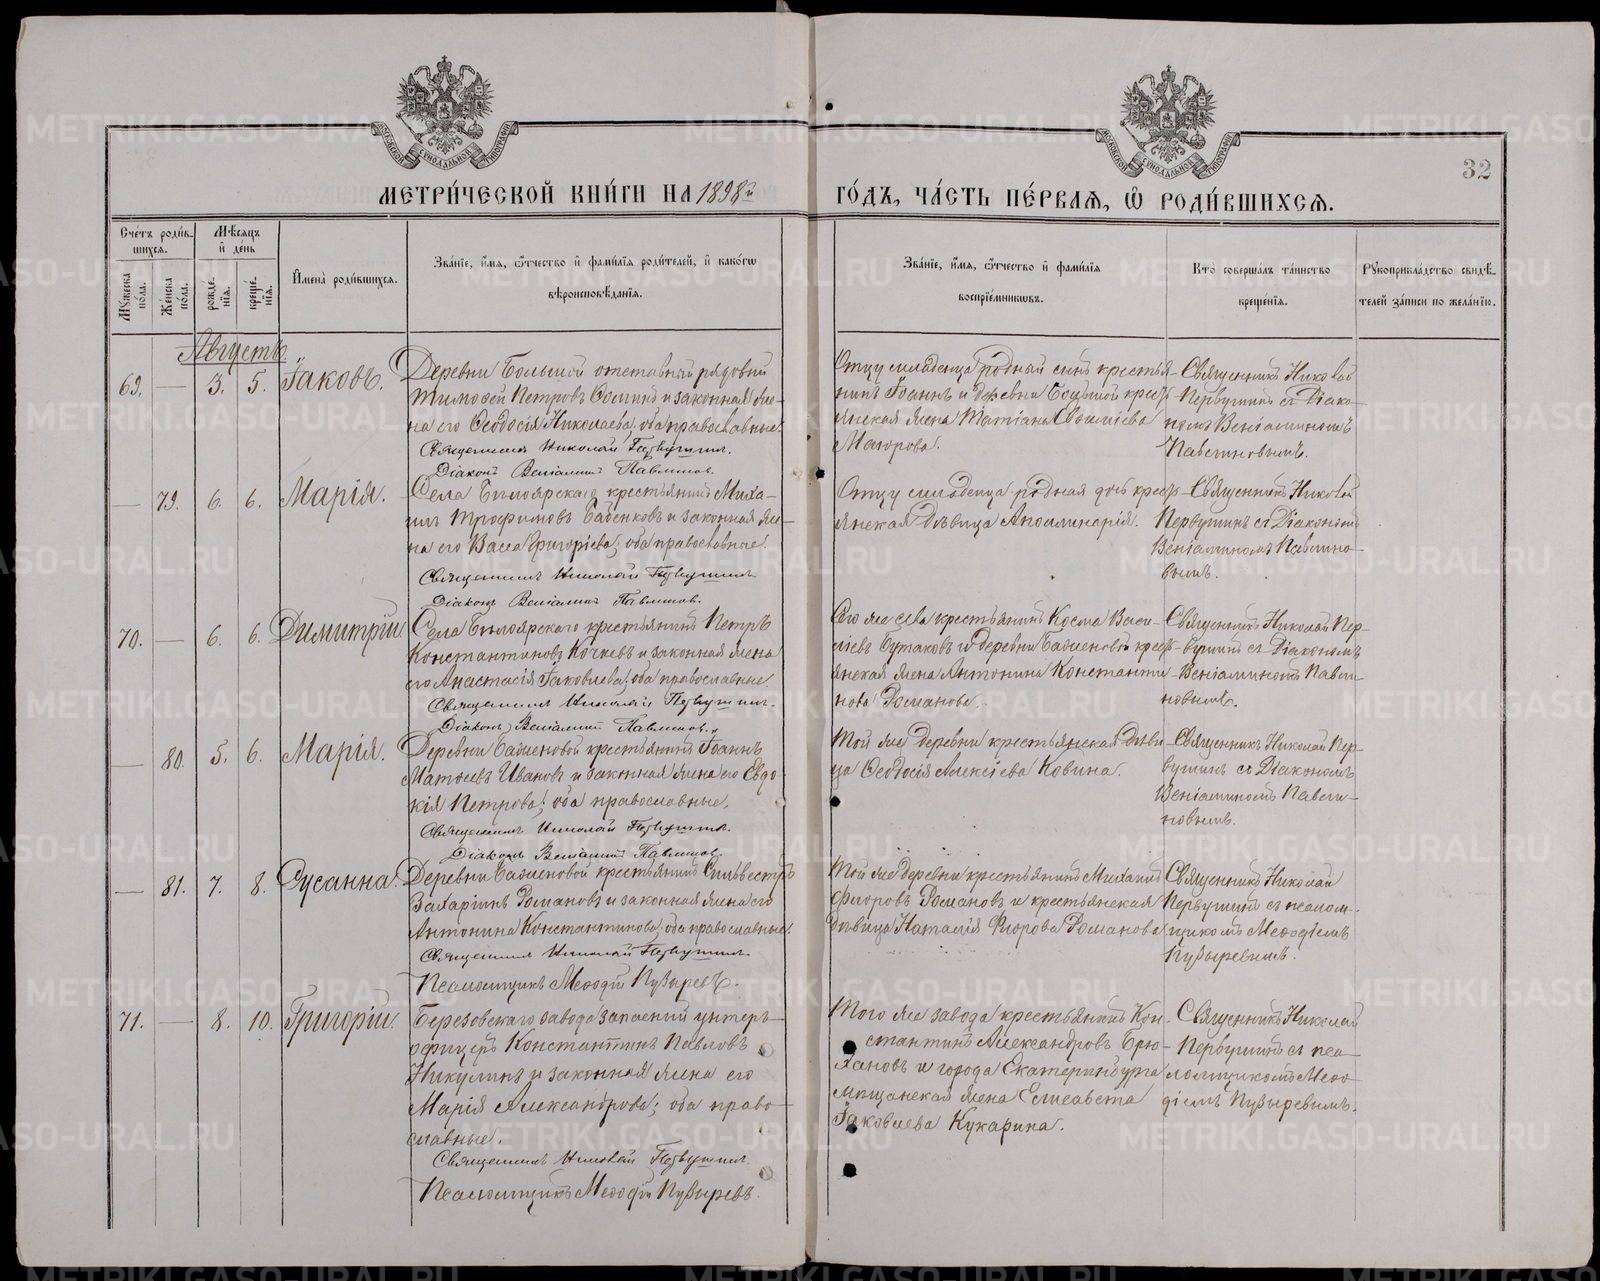 МЕТРИ́ЧЕСКОЙ КНИ́ГИ НА 1898й ГО́ДЪ, ЧА́СТЬ ПЕ́РВАѦ, Ѽ РОДИ́ВШИХСѦ.
32
МОСКОВСКОЙ СѴНОДАЛЬНОЙ ТИПОГРАФІИ
МОСКОВСКОЙ СѴНОДАЛЬНОЙ ТИПОГРАФІИ
Сче́тъ роди́в-
шихсѧ.
Мѣ́сѧцъ
и҆ де́нь
Мꙋ́жеска по́ла.
Же́нска по́ла.
рожде́-
нїѧ.
креще́-
нїѧ.
И҆мена̀ роди́вшихсѧ.
Зва́нїе, и҆́мѧ, ѻ҆́тчество и҆ фами́лїѧ роди́телей, и҆ како́гѡ
вѣроисповѣ́данїѧ.
Зва́нїе, и҆́мѧ, ѻ҆́тчество и҆ фами́лїѧ
воспрїе́мникѡвъ.
Кто̀ соверша́лъ та́инство
креще́нїѧ.
Рꙋкоприкла́дство свидѣ́-
телей за́писи по жела́нїю.
Августъ
69. — 3. 5. Іаковъ.
Деревни Большой отставный рядовый
Тимоѳей Петровъ Ѳоминъ и законная же-
на его Ѳеодосія Николаева; оба православные.
Священникъ Николай Первушинъ.
Діаконъ Веніаминъ Павлиновъ.
Отцу младенца родный сынъ крестья-
нинъ Іоаннъ и деревни Большой крест-
янская жена Татіана
Маіорова.
Священникъ Николай
Первушинъ съ Діако-
номъ Веніаминомъ
Павлиновымъ.
— 79. 6. 6. Марія.
Села Бѣлоярскаго крестьянинъ Миха-
илъ Трофимовъ Бабенковъ и законная же-
на его Васса Григоріева; оба православные.
Священникъ Николай Первушинъ
Діаконъ Веніаминъ Павлиновъ.
Отцу младенца родная дочь крест-
янская дѣвица Аполлинарія.
Священникъ Николай
Первушинъ съ Діакономъ
Веніаминомъ Павлино-
вымъ.
70. — 6. 6. Димитрій
Села Бѣлоярскаго крестьянинъ Петръ
Константиновъ Кочневъ и законная жена
его Анастасія Іаковлева; оба православные.
Священникъ Николай Первушинъ.
Діаконъ Веніаминъ Павлиновъ.
Того же села крестьянинъ Косма Васи-
ліевъ Бутаковъ и деревни Бабиновой крест-
янская жена Антонина Константи-
нова Романова.
Священникъ Николай Пер-
вушинъ съ Діакономъ
Веніаминомъ Павли-
новымъ.
— 80. 5. 6. Марія.
Деревни Бабиновой крестьянинъ Іоаннъ
Матѳеевъ Ивановъ и законная жена его Евдо-
кія Петрова; оба православные.
Священникъ Николай Первушинъ.
Діаконъ Веніаминъ Павлиновъ.
Той же деревни крестьянская дѣви-
ца Ѳеодосія Алексіева Ковина.
Священникъ Николай Пер-
вушинъ съ Діакономъ
Веніаминомъ Павли-
новымъ.
— 81. 7. 8. Сусанна.
Деревни Бабиновой крестьянинъ Сильвестръ
Захаринъ Романовъ и законная жена его
Антонина Константинова; оба православные.
Священникъ Николай Первушинъ.
Псаломщикъ Меѳодій Пузыревъ.
Той же деревни крестьянинъ Михаилъ
Флоровъ Романовъ и крестьянская
дѣвица Наталія Флорова Романова
Священникъ Николай
Первушинъ съ псалом-
щикомъ Меѳодіемъ
Пузыревымъ.
71. — 8. 10. Григорій.
Березовскаго завода запасный унтеръ-
офицеръ Константинъ Павловъ
Никулинъ и законная жена его
Марія Александрова; оба право-
славные.
Священникъ Николай Первушинъ.
Псаломщикъ Меѳодій Пузыревъ.
Того же завода крестьянинъ Кон-
стантинъ Александровъ Брю-
хановъ и города Екатеринбурга
мѣщанская жена Елисавета
Іаковлева Кукарина.
Священникъ Николай
Первушинъ съ пса-
ломщикомъ Меѳо-
діемъ Пузыревымъ.
METRIKI.GASO-URAL.RU